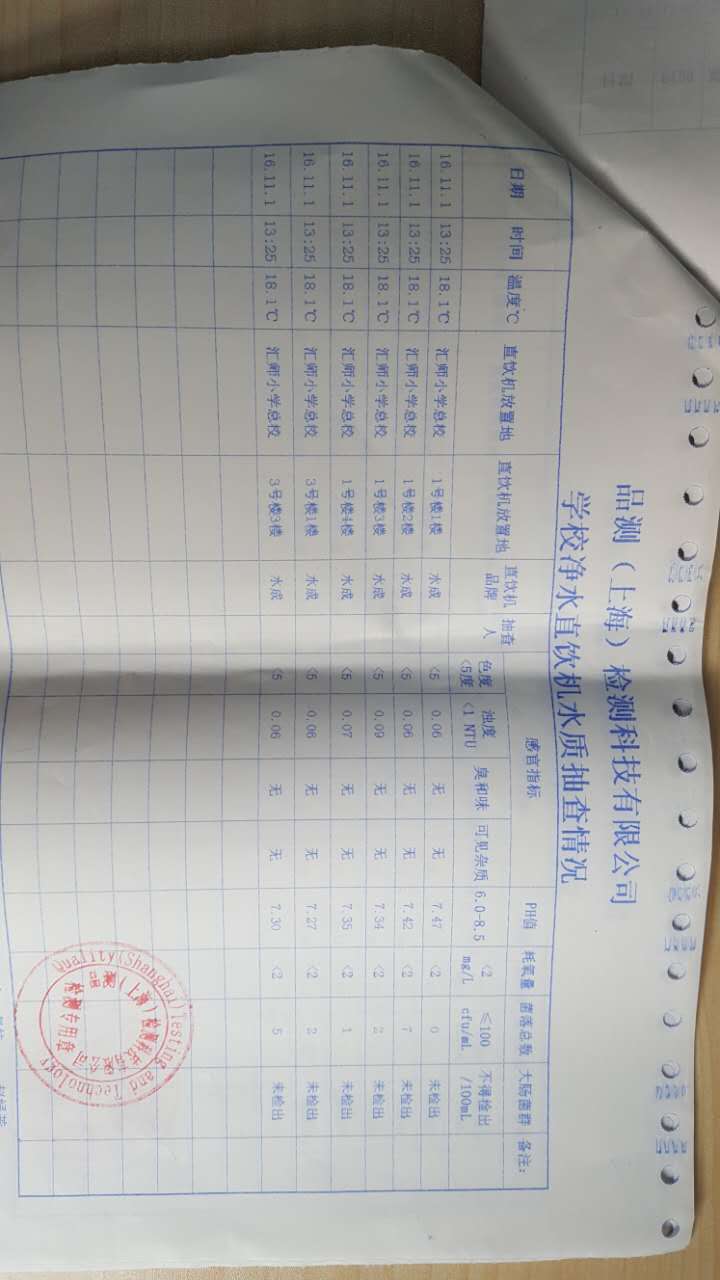 品测（上海）检测科技有限公司
学校净水直饮机水质抽查情况
日期 时间 温度℃ 直饮机放置地 直饮机放置地 直饮机品牌 抽查人 感官指标 PH值 耗氧量 菌落总数 大肠菌群 备注:
色度<5度 浊度<1 NTU 臭和味 可见杂质 6.0-8.5 <2 mg/L ≤100 cfu/mL 不得检出/100mL
16.11.1 13:25 18.1℃ 汇师小学总校 1号楼1楼 水成 <5 0.06 无 无 7.47 <2 0 未检出
16.11.1 13:25 18.1℃ 汇师小学总校 1号楼2楼 水成 <5 0.06 无 无 7.42 <2 7 未检出
16.11.1 13:25 18.1℃ 汇师小学总校 1号楼3楼 水成 <5 0.09 无 无 7.34 <2 2 未检出
16.11.1 13:25 18.1℃ 汇师小学总校 1号楼4楼 水成 <5 0.07 无 无 7.35 <2 1 未检出
16.11.1 13:25 18.1℃ 汇师小学总校 3号楼1楼 水成 <5 0.06 无 无 7.27 <2 2 未检出
16.11.1 13:25 18.1℃ 汇师小学总校 3号楼3楼 水成 <5 0.06 无 无 7.30 <2 5 未检出
Quality(Shanghai)Testing and Technology
品测（上海）检测科技有限公司
检测专用章